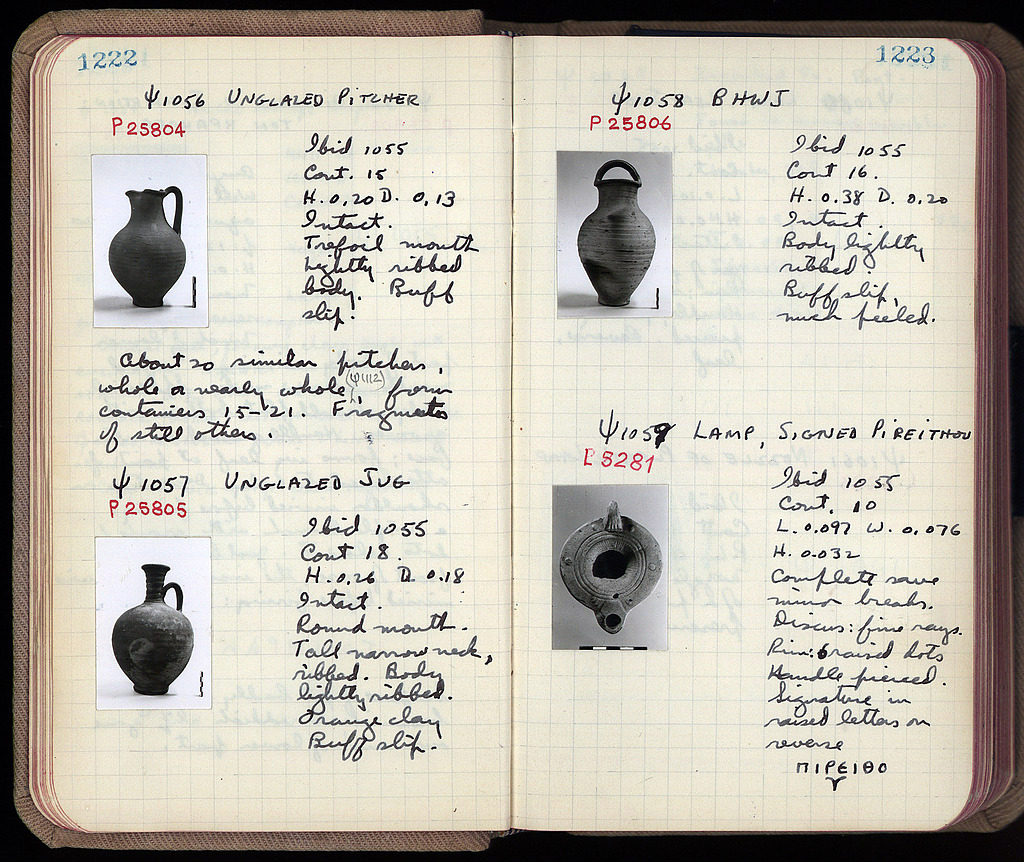 1222
Ψ1056 UNGLAZED PITCHER
P25804
Ibid 1055
Cont. 15
H. 0,20 D. 0,13
Intact.
Trefoil mouth
Lightly ribbed
body. Buff
slip.
About 20 similar pitchers,
whole or nearly whole (Ψ1112), from
containers 15-21. Fragments
of still others.
Ψ1057 UNGLAZED JUG
P25805
Ibid 1055
Cont 18.
H. 0,26 D. 0,18
Intact.
Round mouth.
Tall narrow neck,
ribbed. Body
lightly ribbed.
Orange clay
Buff slip.
1223
Ψ1058 BHWJ
P25806
Ibid 1055
Cont 16.
H. 0,38 D. 0,20
Intact.
Body lightly
ribbed.
Buff slip,
much peeled.
Ψ1059 LAMP, SIGNED PIREITHOU
L5281
Ibid 1055
Cont. 10
L. 0.097 W. 0,076
H. 0.032
Complete save
minor breaks.
Discus: fine rays.
Rim: 6 raised dots
Handle pierced.
Signature in
raised letters on
reverse
ΠΙΡΕΙΘΟ
Υ